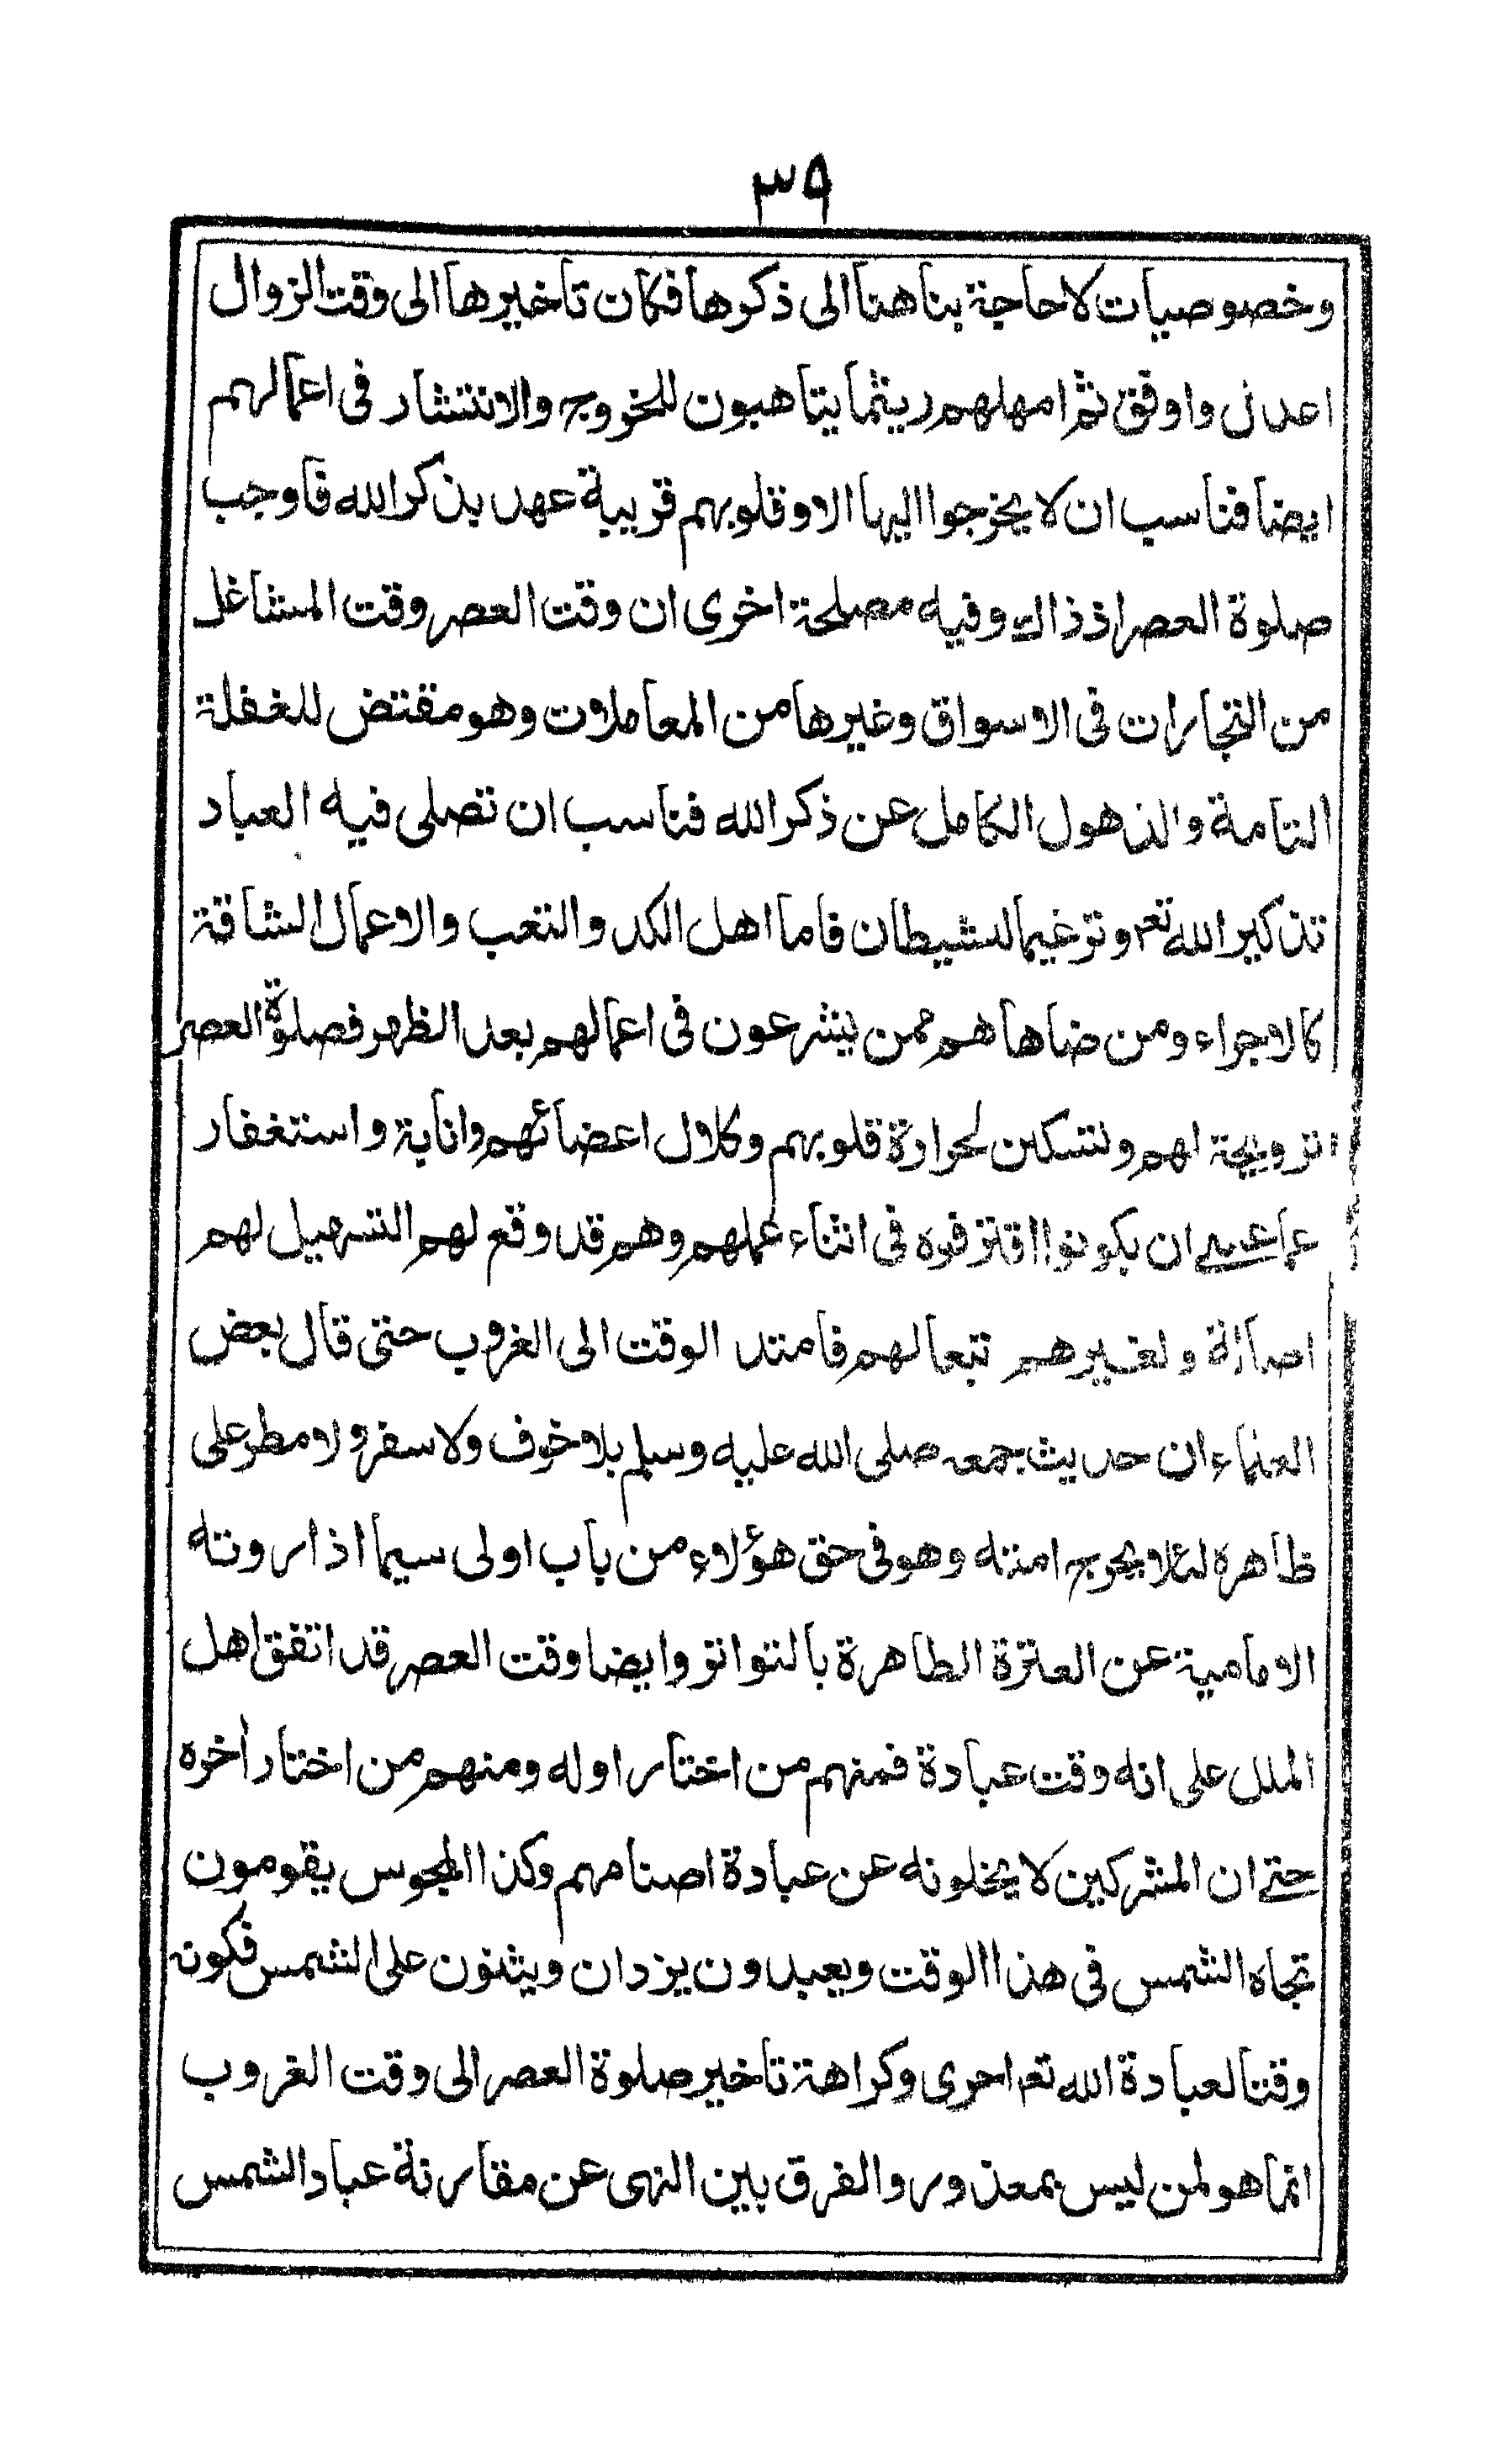 ٣٩
وخصوصيات لاحاجة بنا هنا الى ذكرها فكان تاخيرها الى وقت الزوال
اعدل واوفق ثم امهلهم ريثما يتاهبون للخروج والانتشار فى اعمالهم
ايضا فناسب ان لا يخرجوا اليها الا وقلوبهم قريبة عهد بذكر الله فاوجب
صلوة العصر اذ ذاك وفيه مصلحة اخرى ان وقت العصر وقت المشاغل
من التجارات فى الاسواق وغيرها من المعاملات وهو مقتض للغفلة
التامة والذهول الكامل عن ذكر الله فناسب ان تصلى فيه العباد
تذكير الله تعم وترغيما للشيطان فاما اهل الكد والتعب والاعمال الشاقة
كالاجراء ومن ضاهاهم ممن يشرعون فى اعمالهم بعد الظهر فصلوة العصر
ترويحة لهم وتسكين لحرارة قلوبهم وكلال اعضائهم وانابة واستغفار
عما عسى ان يكونوا اقترفوه فى اثناء عملهم وهم قد وقع لهم التسهيل لهم
اصالة ولغيرهم تبعا لهم فامتد الوقت الى الغروب حتى قال بعض
العلماء ان حديث جمعه صلى الله عليه وسلم بلا خوف ولا سفر ولا مطر على
ظاهره لئلا يحرج امته وهو فى حق هؤلاء من باب اولى سيما اذا روته
الامامية عن العترة الطاهرة بالتواتر وايضا وقت العصر قد اتفق اهل
الملل على انه وقت عبادة فمنهم من اختار اوله ومنهم من اختار اخره
حتى ان المشركين لا يخلونه عن عبادة اصنامهم وكذا المجوس يقومون
تجاه الشمس فى هذا الوقت ويعبدون يزدان ويثنون على الشمس فكونه
وقتا لعبادة الله تعم احرى وكراهة تاخير صلوة العصر الى وقت الغروب
انما هو لمن ليس بمعذور والفرق بين النهى عن مقارنة عباد الشمس